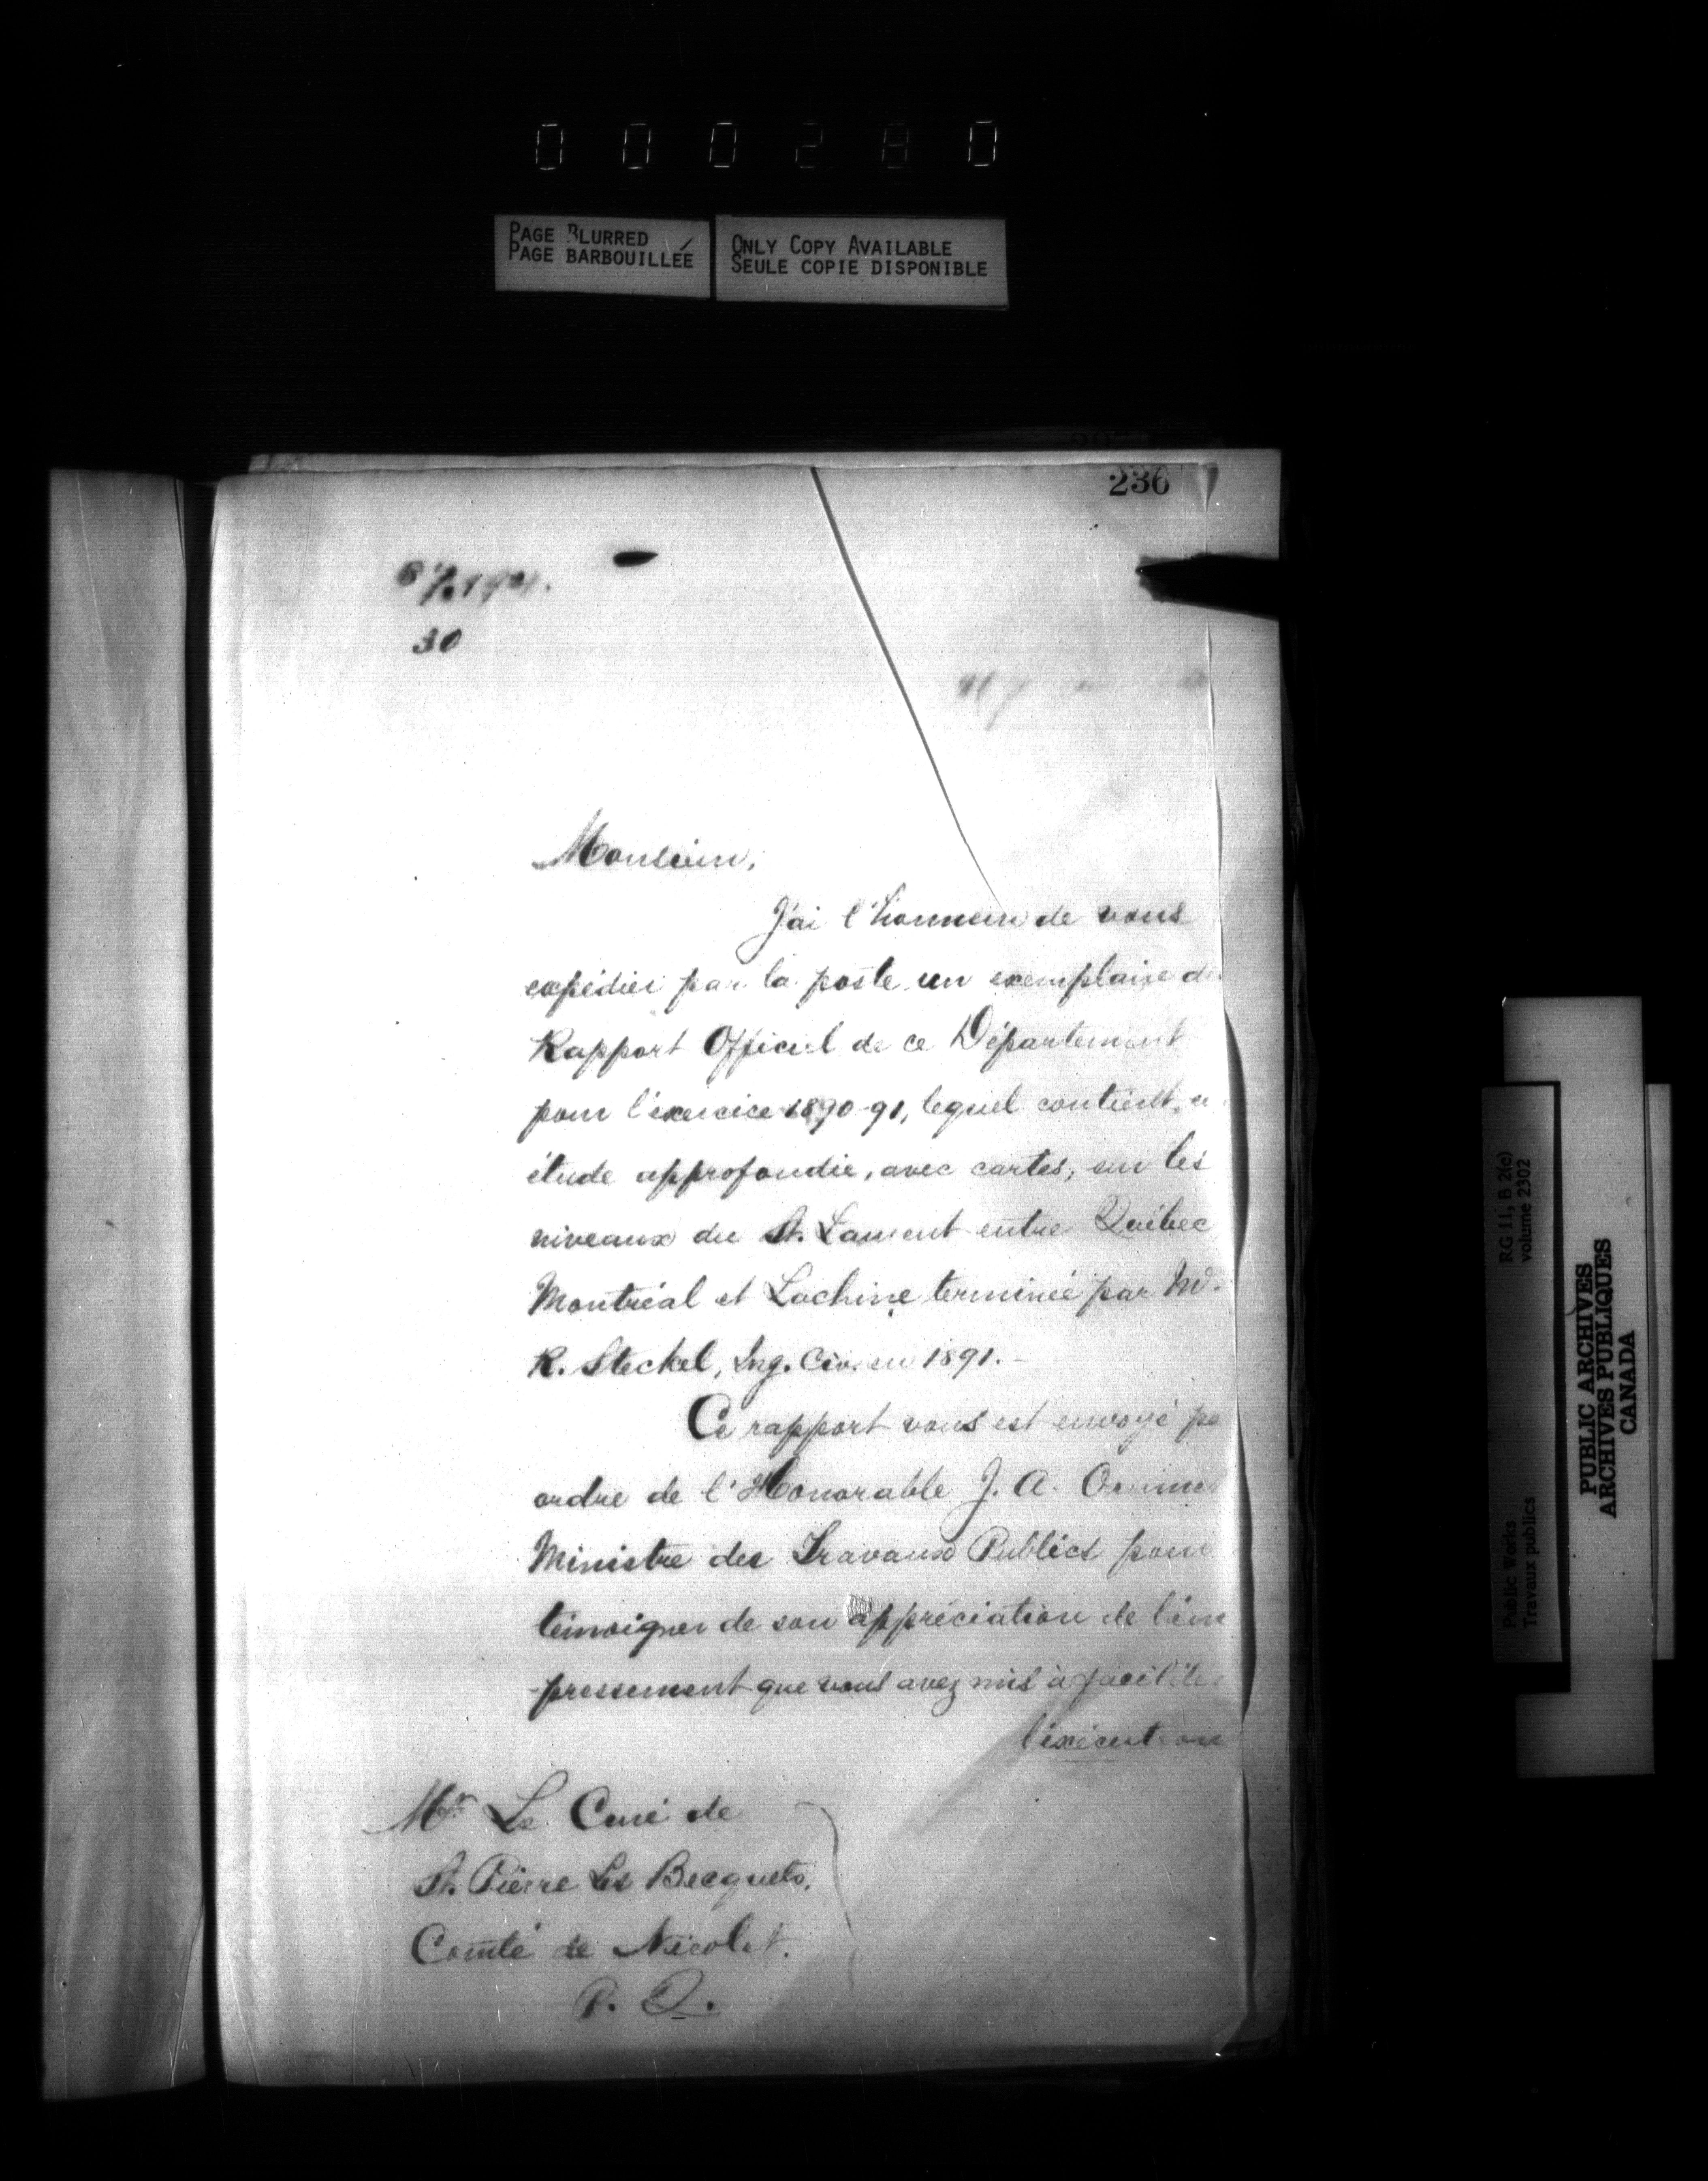 000280
PAGE BLURRED
PAGE BARBOUILLÉE
ONLY COPY AVAILABLE
SEULE COPIE DISPONIBLE
236
30
Monsieur,
J'ai l'honneur de vous
expédier par la poste un exemplaire d
Rapport Officiel de ce Département
pour l'exercice 1890-91, lequel contient, u
étude approfondie, avec cartes, sur les
niveaux du St. Laurent entre Québec
Montréal et Lachine terminée par Mr.
R. Steckel, Ing. Civ. en 1891. -
Ce rapport vous est envoyé pa
ordre de l'Honorable J. A. Ouimet
Ministre des Travaux Publics pour
témoigner de son appréciation de l'em
-pressement que vous avez mis à faciliter
l'exécution
Mr Le Curé de
St. Pierre Les Becquets,
Comté de Nicolet.
P. Q.
RG 11, B 2(c)
volume 2302
Public Works
Travaux publics
PUBLIC ARCHIVES
ARCHIVES PUBLIQUES
CANADA